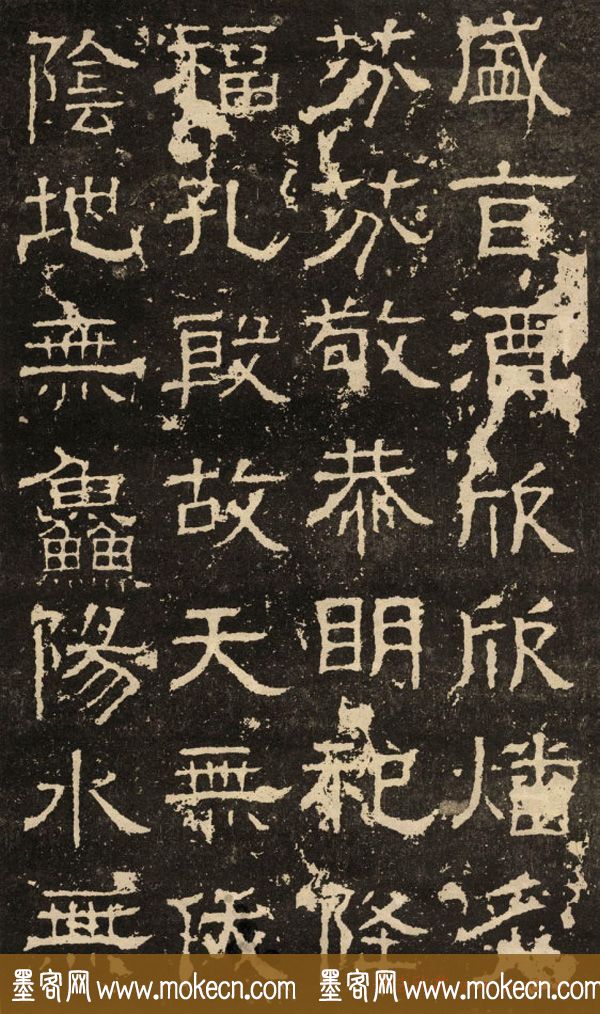 盛旨酒欣欣燔炙
芬芬敬恭明祀降
福孔殷故天無伏
陰地無鱻陽水無
墨客网 www.mokecn.com 墨客网 www.mokecn.com